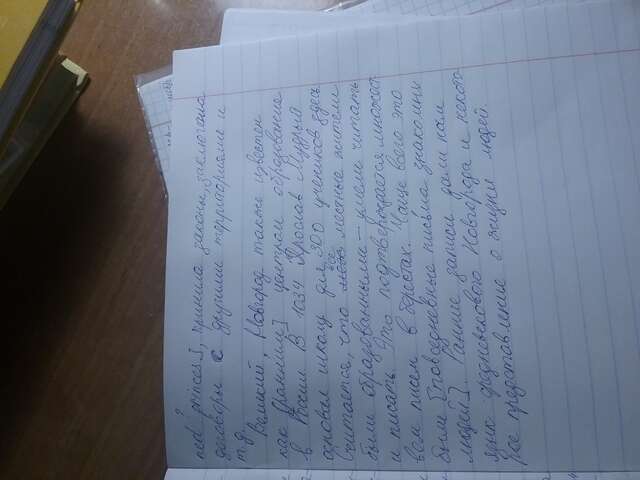 ned? princes], приняла законы, заключала
договоры с другими территориями и
т.д.
Великий Новгород также известен
как [ранним] центром образование
в России В 1034 Ярослав Мудрый
основал школу для 300 учеников здесь
Считается, что все местные жители
были образованными – умели читать
и писать. Это подтверждается множест
вом писем в берстах. Чаще всего это
были [повседневные письма знакомых
людей]. Ранние записи дали нам
язык средневекового Новгорода и некото
рое представление о жизни людей.